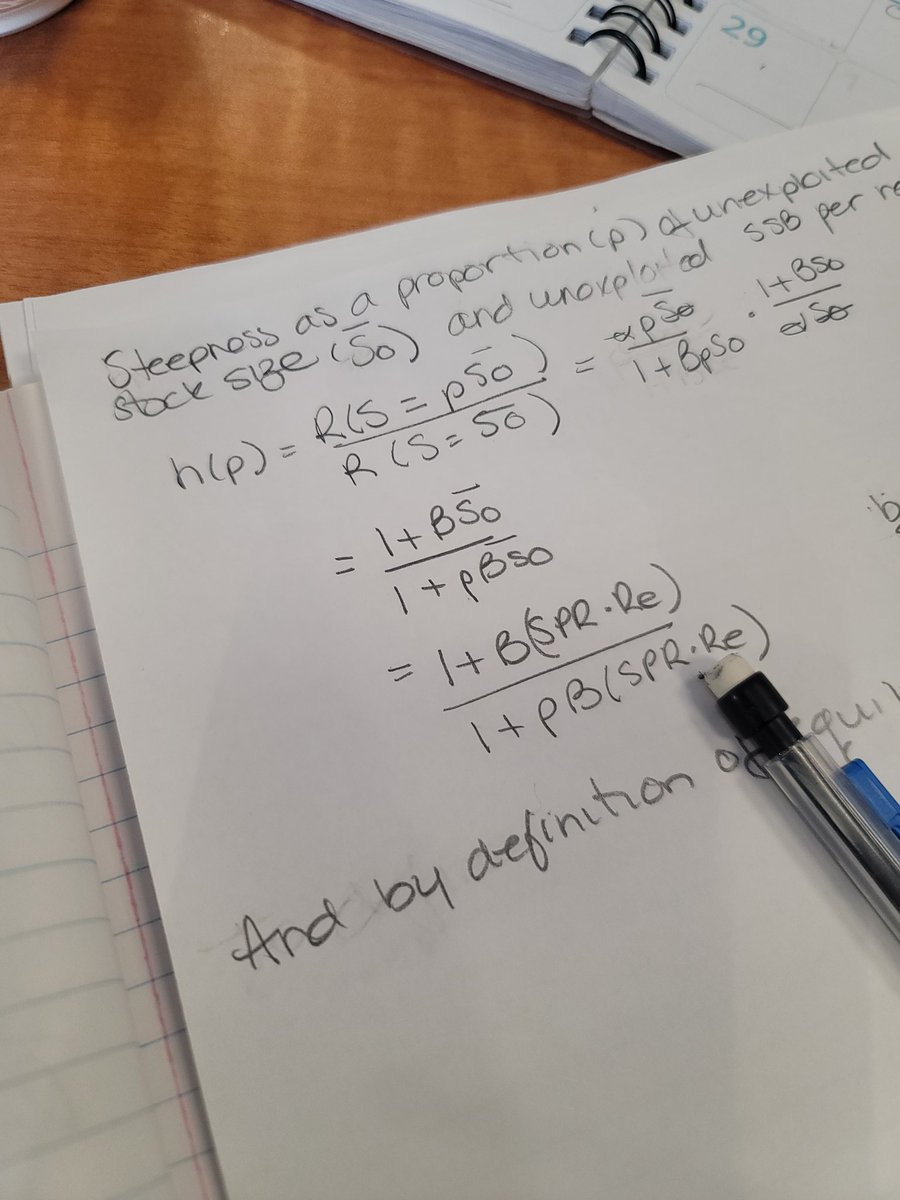 29
Steepness as a proportion (p) of unexploited
stock size (S̄o) and unexploited SSB per re
h(p) = R(S = pS̄o) / R(S = S̄o) = αpS̄o / 1+BpSo · 1+BSo / αSo
= 1+BS̄o / 1+pBS̄o
= 1+B(SPR·Re) / 1+pB(SPR·Re)
b
And by definition of equil